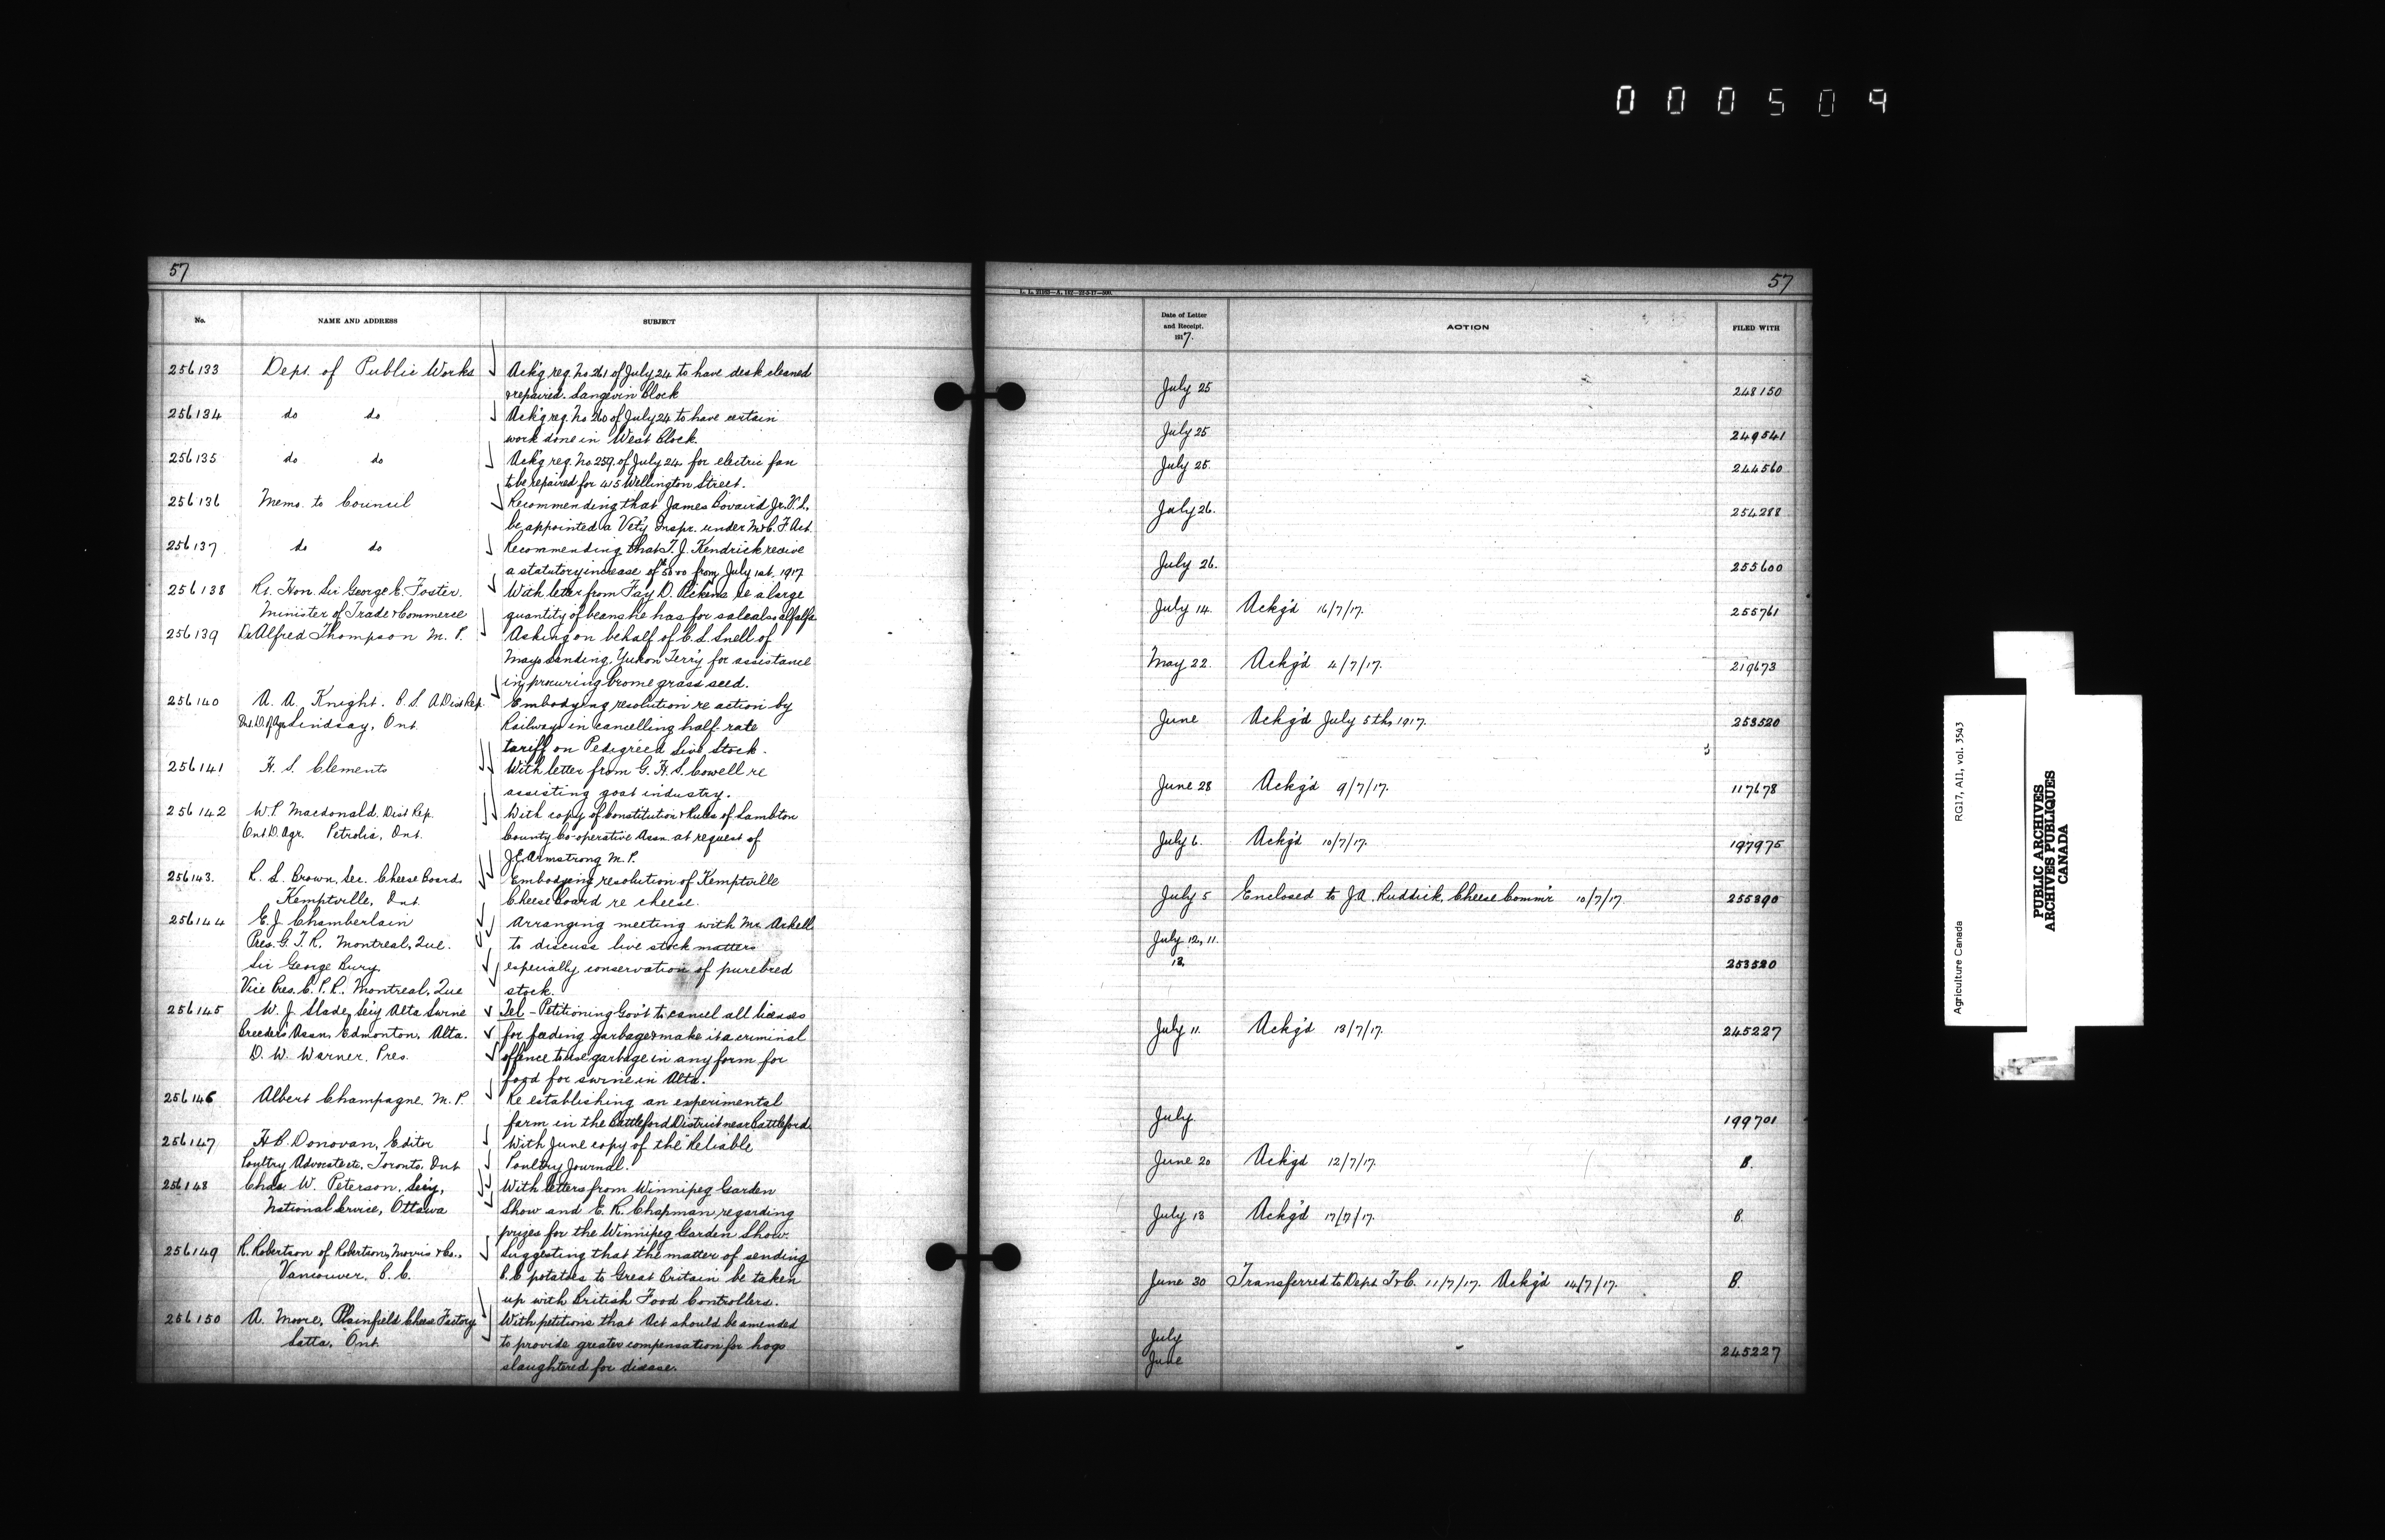 000509
57
57
L. L. 21115—A. 147—23-3-17—500.
No.
NAME AND ADDRESS
SUBJECT
Date of Letter and Receipt. 1917.
ACTION
FILED WITH
256133 Dept. of Public Works Ack'g req. No 261 of July 24 to have desk cleaned July 25 248150
& repaired. Langevin Block
256134 do do Ack'g req. No 260 of July 24 to have certain July 25 249541
work done in West Block.
256135 do do Ack'g req. No 259 of July 24 for electric fan July 25. 244560
to be repaired for 415 Wellington Street.
256136 Memo. to Council Recommending that James Bovaird Jr. V.S., July 26. 254288
be appointed a Vet'y Inspr. under M & C. F Act.
256137 do do Recommending that T. J. Kendrick receive July 26. 255600
a statutory increase of $50.00 from July 1st, 1917
256138 Rt. Hon. Sir George E. Foster. With letter from Fay D. Pickens re a large July 14. Ackg'd 16/7/17. 255761
Minister of Trade & Commerce quantity of beans he has for sale also alfalfa
256139 Dr Alfred Thompson M. P. Asking on behalf of C. L. Snell of May 22. Ackg'd 4/7/17. 219673
Mayo Landing, Yukon Terr'y for assistance
in procuring brome grass seed.
256140 A. A. Knight. B. S. A Dist Rep Embodying resolution re action by June Ackg'd July 5th, 1917. 253520
Lindsay, Ont. Railways in cancelling half-rate
tariff on Pedigreed Live Stock.
256141 H. S. Clements With letter from G. H. S. Cowell re June 28 Ackg'd 9/7/17. 117678
assisting goat industry.
256142 W. P. Macdonald. Dist Rep. With copy of Constitution & Rules of Lambton July 6. Ackg'd 10/7/17. 197975
Ont D. Agr. Petrolia, Ont. County Co-operative Assn. at request of
J E Armstrong M. P.
256143. R. L. Brown, Sec. Cheese Board. Embodying resolution of Kemptville July 5 Enclosed to J. A. Ruddick, Cheese Comm'r 10/7/17. 255390
Kemptville, Ont. Cheese Board re cheese.
256144 E. J. Chamberlain Arranging meeting with Mr. Arkell July 12, 11. 253520
Pres. G. T. R. Montreal, Que. to discuss live stock matters 12,
Sir George Bury. especially conservation of purebred
Vice Pres. C. P. R. Montreal, Que stock.
256145 W. J. Slade, Sec'y Alta Swine Tel - Petitioning Gov't to cancel all licenses July 11. Ackg'd 13/7/17. 245227
Breeders Assn, Edmonton, Alta. for feeding garbage & make it a criminal
D. W. Warner, Pres. offence to use garbage in any form for
food for swine in Alta.
256146 Albert Champagne. M. P. Re establishing an experimental July. 199701
farm in the Battleford District near Battleford
256147 H. B. Donovan, Editor With June copy of the "Reliable June 20 Ackg'd 12/7/17. B.
Poultry Advocate etc, Toronto, Ont Poultry Journal."
256148 Chas. W. Peterson, Sec'y, With letters from Winnipeg Garden July 13 Ackg'd 17/7/17. B.
National Service, Ottawa Show and E. R. Chapman, regarding
prizes for the Winnipeg Garden Show.
256149 R. Robertson of Robertson, Morris & Co., Suggesting that the matter of sending June 30 Transferred to Dept. T & C. 11/7/17. Ackg'd 14/7/17. B.
Vancouver, B. C. B. C potatoes to Great Britain be taken
up with British Food Controllers.
256150 A. Moore, Plainfield Cheese Factory With petitions that Act should be amended July 245227
Latta, Ont. to provide greater compensation for hogs June
slaughtered for disease.
Agriculture Canada
RG17, AII, vol. 3543
PUBLIC ARCHIVES
ARCHIVES PUBLIQUES
CANADA